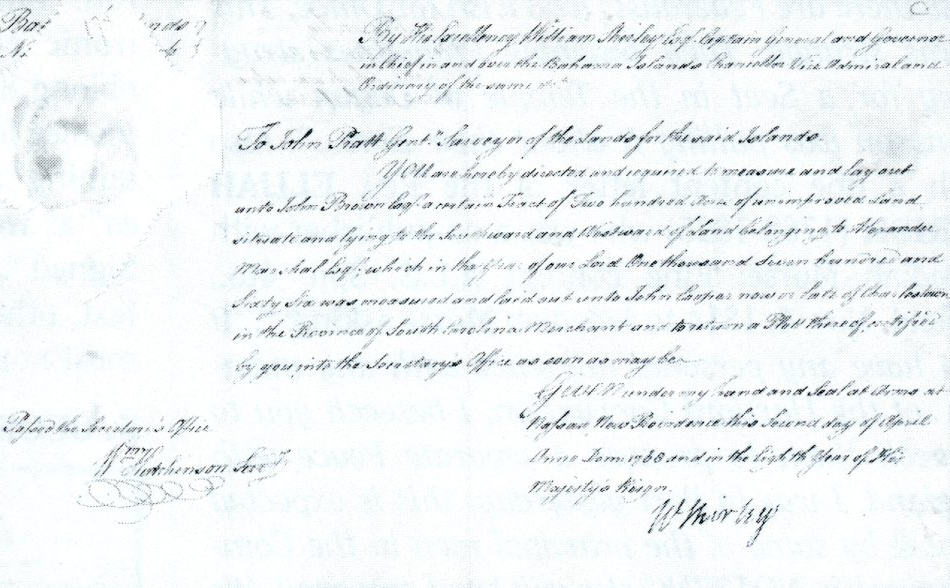 By His Excellency William Shirley Esq.r Captain General and Governor
in Chief in and over the Bahama Islands Chancellor Vice Admiral and
Ordinary of the same
To John Pratt Gent.n Surveyor of the Lands for the said Islands.
YOU are hereby directed and required to measure and lay out
unto John Brown Esq.r a certain Tract of Two hundred Acres of unimproved Land
situate and lying to the Southward and Westward of Land belonging to Alexander
Marshal Esq.r which in the Year of our Lord One thousand seven hundred and
Sixty Six was measured and laid out unto John Cooper now or late of Charlestown
in the Province of South Carolina Merchant and to return a Platt thereof certified
by you into the Secretary's Office as soon as may be
GIVEN under my hand and Seal at Arms at
Nassau New Providence this Second day of April
Anno Dom: 1768 and in the Eighth Year of His
Majesty's Reign.
W Shirley
Passed the Secretarys Office
Wm Hutchenson Secry